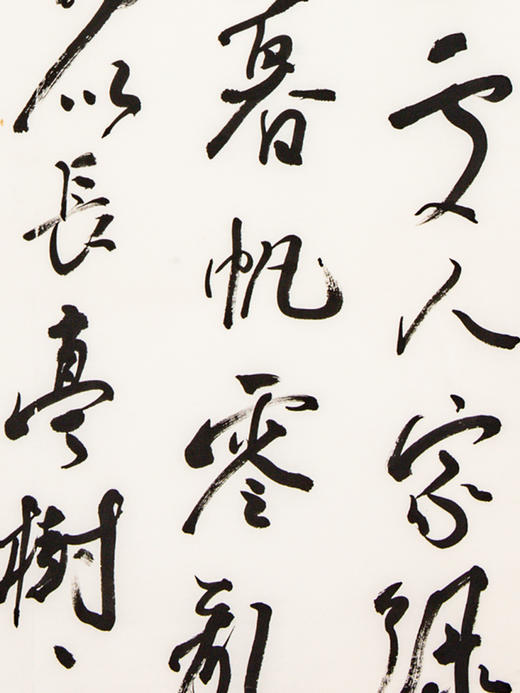 處人家綠
暮帆零亂
似長亭樹、